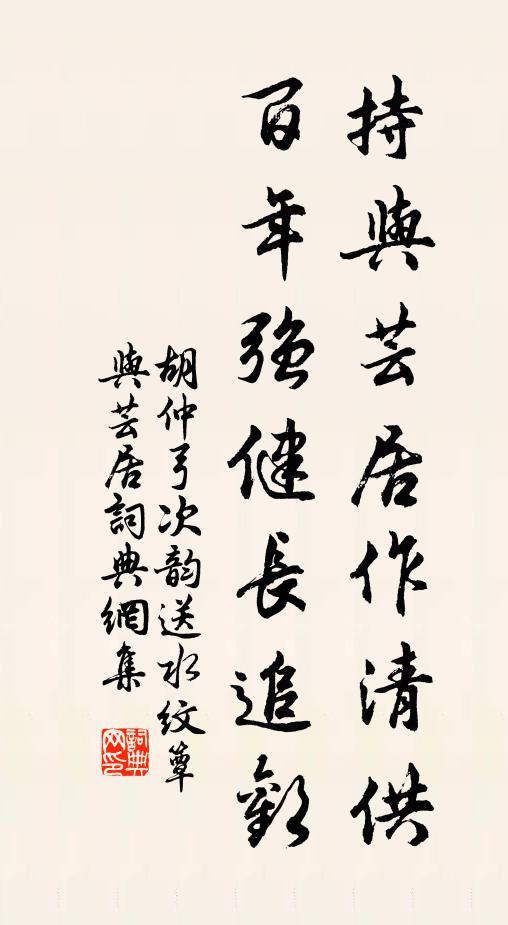 持與芸居作清供
百年強健長追歡
胡仲弓次韵送水紋簟
與芸居詞典網集
詞典網印